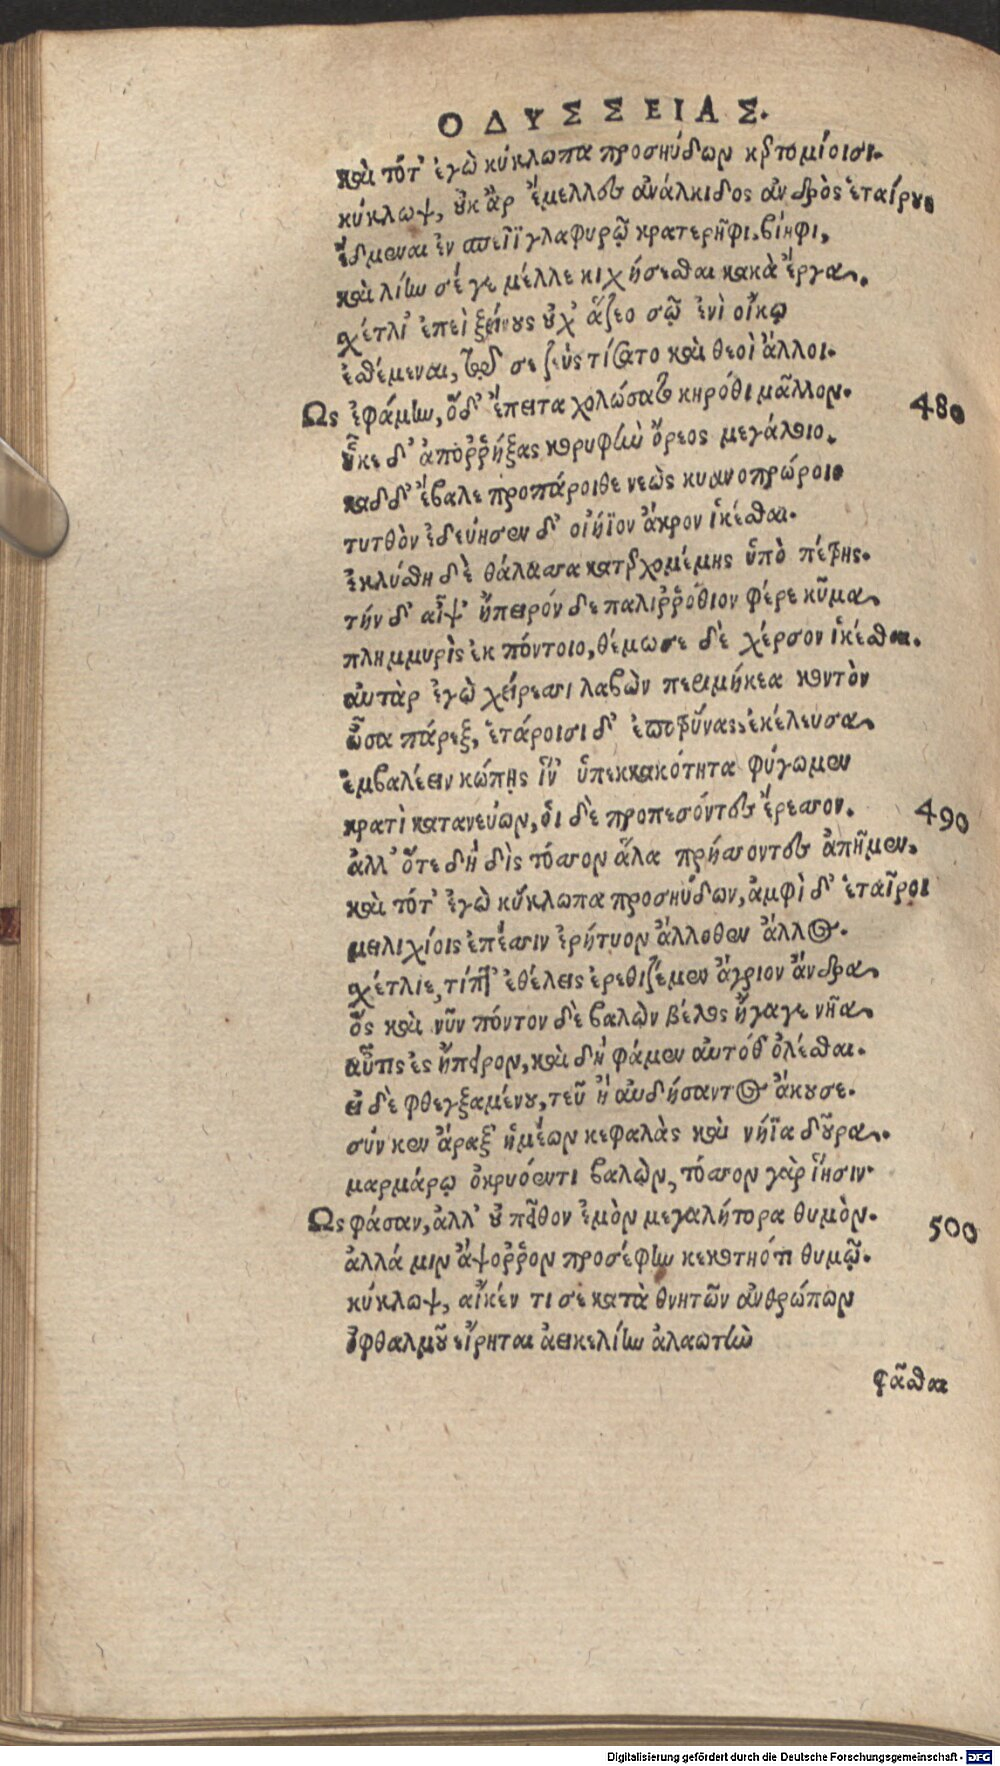 ΟΔΥΣΣΕΙΑΣ.
καὶ τότ' ἐγὼ κύκλωπα προσηύδων κερτομίοισι.
κύκλωψ, οὐκ ἂρ ἔμελλες ἀνάλκιδος ἀνδρὸς ἑταίρους
ἔδμεναι ἐν σπεῖϊ γλαφυρῷ κρατερῆφι βίηφι,
καὶ λίην σέ γε μέλλε κιχήσεσθαι κακὰ ἔργα.
σχέτλι' ἐπεὶ ξείνους οὐχ ἅζεο σῷ ἐνὶ οἴκῳ
ἐσθέμεναι, τῷ σε ζεὺς τίσατο καὶ θεοὶ ἄλλοι.
Ως ἐφάμην, ὅδ' ἔπειτα χολώσατο κηρόθι μᾶλλον. 480
ἧκε δ' ἀποῤῥήξας κορυφὴν ὄρεος μεγάλοιο.
καδδ' ἔβαλε προπάροιθε νεὼς κυανοπρώροιο
τυτθὸν ἐδεύησεν δ' οἰήϊον ἄκρον ἱκέσθαι.
ἐκλύσθη δὲ θάλασσα κατερχομένης ὑπὸ πέτρης.
τήν δ' αἶψ' ἤπειρόν δε παλιῤῥόθιον φέρε κῦμα
πλημμυρὶς ἐκ πόντοιο, θέμωσε δὲ χέρσον ἱκέσθαι.
αὐτὰρ ἐγὼ χείρεσσι λαβὼν περιμήκεα κοντὸν
ὦσα πάρεξ, ἑτάροισι δ' ἐποτρύνας ἐκέλευσα
ἐμβαλέειν κώπῃς ἵν' ὑπεκκακότητα φύγωμεν
κρατὶ κατανεύων, οἱ δὲ προπεσόντες ἔρεσσον. 490
ἀλλ' ὅτε δὴ δὶς τόσσον ἅλα πρήσσοντες ἀπῆμεν.
καὶ τότ' ἐγὼ κύκλωπα προσηύδων, ἀμφὶ δ' ἑταῖροι
μειλιχίοις ἐπέεσσιν ἐρήτυον ἄλλοθεν ἄλλος.
σχέτλιε, τίπτ' ἐθέλεις ἐρεθιζέμεν ἄγριον ἄνδρα
ὃς καὶ νῦν πόντον δὲ βαλὼν βέλος ἤγαγε νῆα
αὖτις ἐς ἤπειρον, καὶ δὴ φάμεν αὐτόθ' ὀλέσθαι.
εἰ δὲ φθεγξαμένου, τεῦ ἢ αὐδήσαντος ἄκουσε.
σύν κεν ἄραξ' ἡμέων κεφαλὰς καὶ νήϊα δοῦρα.
μαρμάρῳ ὀκρυόεντι βαλὼν, τόσσον γὰρ ἵησιν.
Ως φάσαν, ἀλλ' οὐ πεῖθον ἐμὸν μεγαλήτορα θυμὸν. 500
ἀλλά μιν ἄψοῤῥον προσέφην κεκοτηότι θυμῷ.
κύκλωψ, αἴκέν τι σε κατὰ θνητῶν ἀνθρώπων
ὀφθαλμοῦ εἴρηται ἀεικελίην ἀλαωτὴν
φᾶσθαι
Digitalisierung gefördert durch die Deutsche Forschungsgemeinschaft - DFG